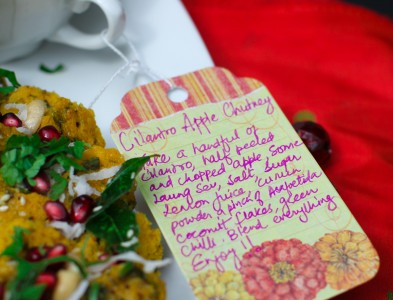 Cilantro Apple Chutney
Take a handful of
cilantro, half peeled
and chopped apple, some
laung sev, salt, sugar
lemon juice, cumin
powder, a pinch of asafoetida
coconut flakes, green
chilli. Blend everything
Enjoy!!